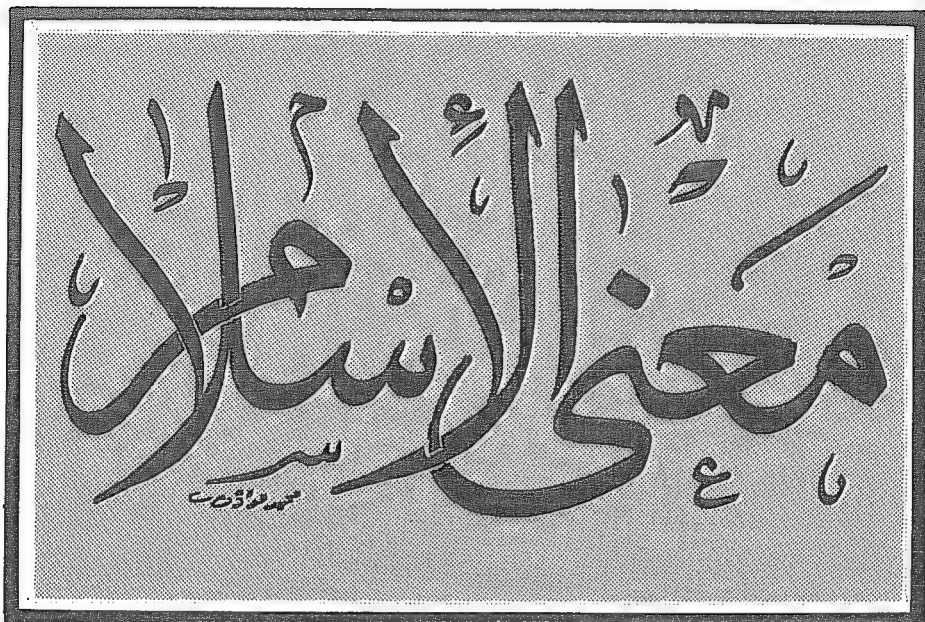 معنى الإسلام